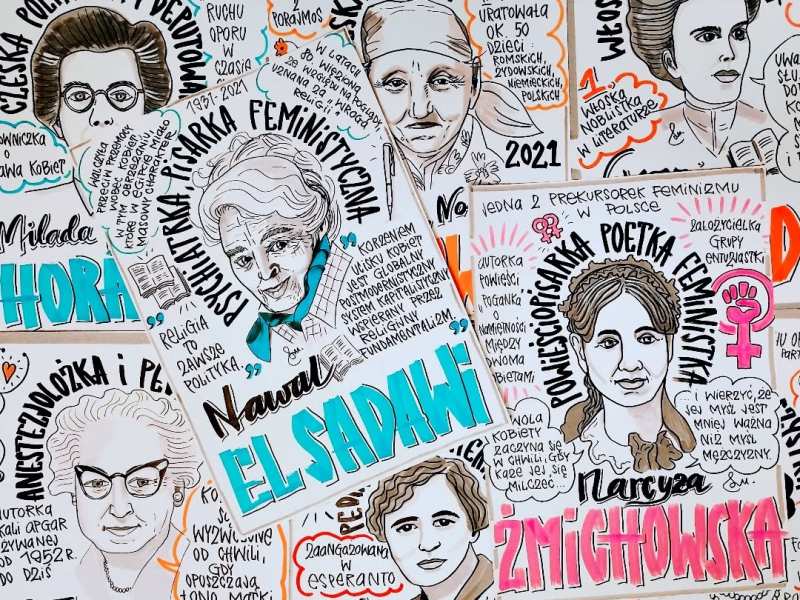 CZESKA
RUCHU
OPORU
W
CZASIE
2
PORAJMOS
URATOWAŁA
OK. 50
DZIECI:
ROMSKICH,
ŻYDOWSKICH,
NIEMIECKICH,
POLSKICH
2021
1.
WŁOSKA
NOBLISTKA
W LITERATURZE
O
KOBIET
Milada
HORA
1931-2021
W LATACH
80. WIĘZIONA
ZE WZGLĘDU NA POGLĄDY,
UZNANO ZA "WROGA
RELIGII"
PSYCHIATRKA, PISARKA FEMINISTYCZNA
WALCZYŁA
PRZECIW PRZEMOCY
WOBEC KOBIET,
W TYM OBRZEZANIU,
KTÓRE W EGIPCIE MIAŁO
MASOWY CHARAKTER
"RELIGIA
TO
ZAWSZE
POLITYKA."
"KORZENIEM
UCISKU KOBIET
JEST GLOBALNY
POSTMODERNISTYCZNY
SYSTEM KAPITALISTYCZNY
WSPIERANY PRZEZ
RELIGIJNY
FUNDAMENTALIZM."
Nawal
EL SADAWI
JEDNA Z PREKURSOREK FEMINIZMU
W POLSCE
POWIEŚCIOPISARKA POETKA FEMINISTKA
AUTORKA
POWIEŚCI
"POGANKA"
O
NAMIĘTNOŚCI
MIĘDZY
DWOMA
KOBIETAMI
ZAŁOŻYCIELKA
GRUPY
ENTUZJASTKI
WOLA
KOBIETY
ZACZYNA SIĘ
W CHWILI, GDY
KAŻE JEJ SIĘ
MILCZEĆ...
I WIERZYĆ, ŻE
JEJ MYŚL JEST
MNIEJ WAŻNA
NIŻ MYŚL
MĘŻCZYZNY
Narcyza
ŻMICHOWSKA
ANESTEZJOLOŻKA I
AUTORKA
SKALI APGAR
OD
1952 R.
DO DZIŚ
OD CHWILI,
GDY
OPUSZCZAJĄ
ŁONO MATKI
ZAANGAŻOWANA
W
ESPERANTO